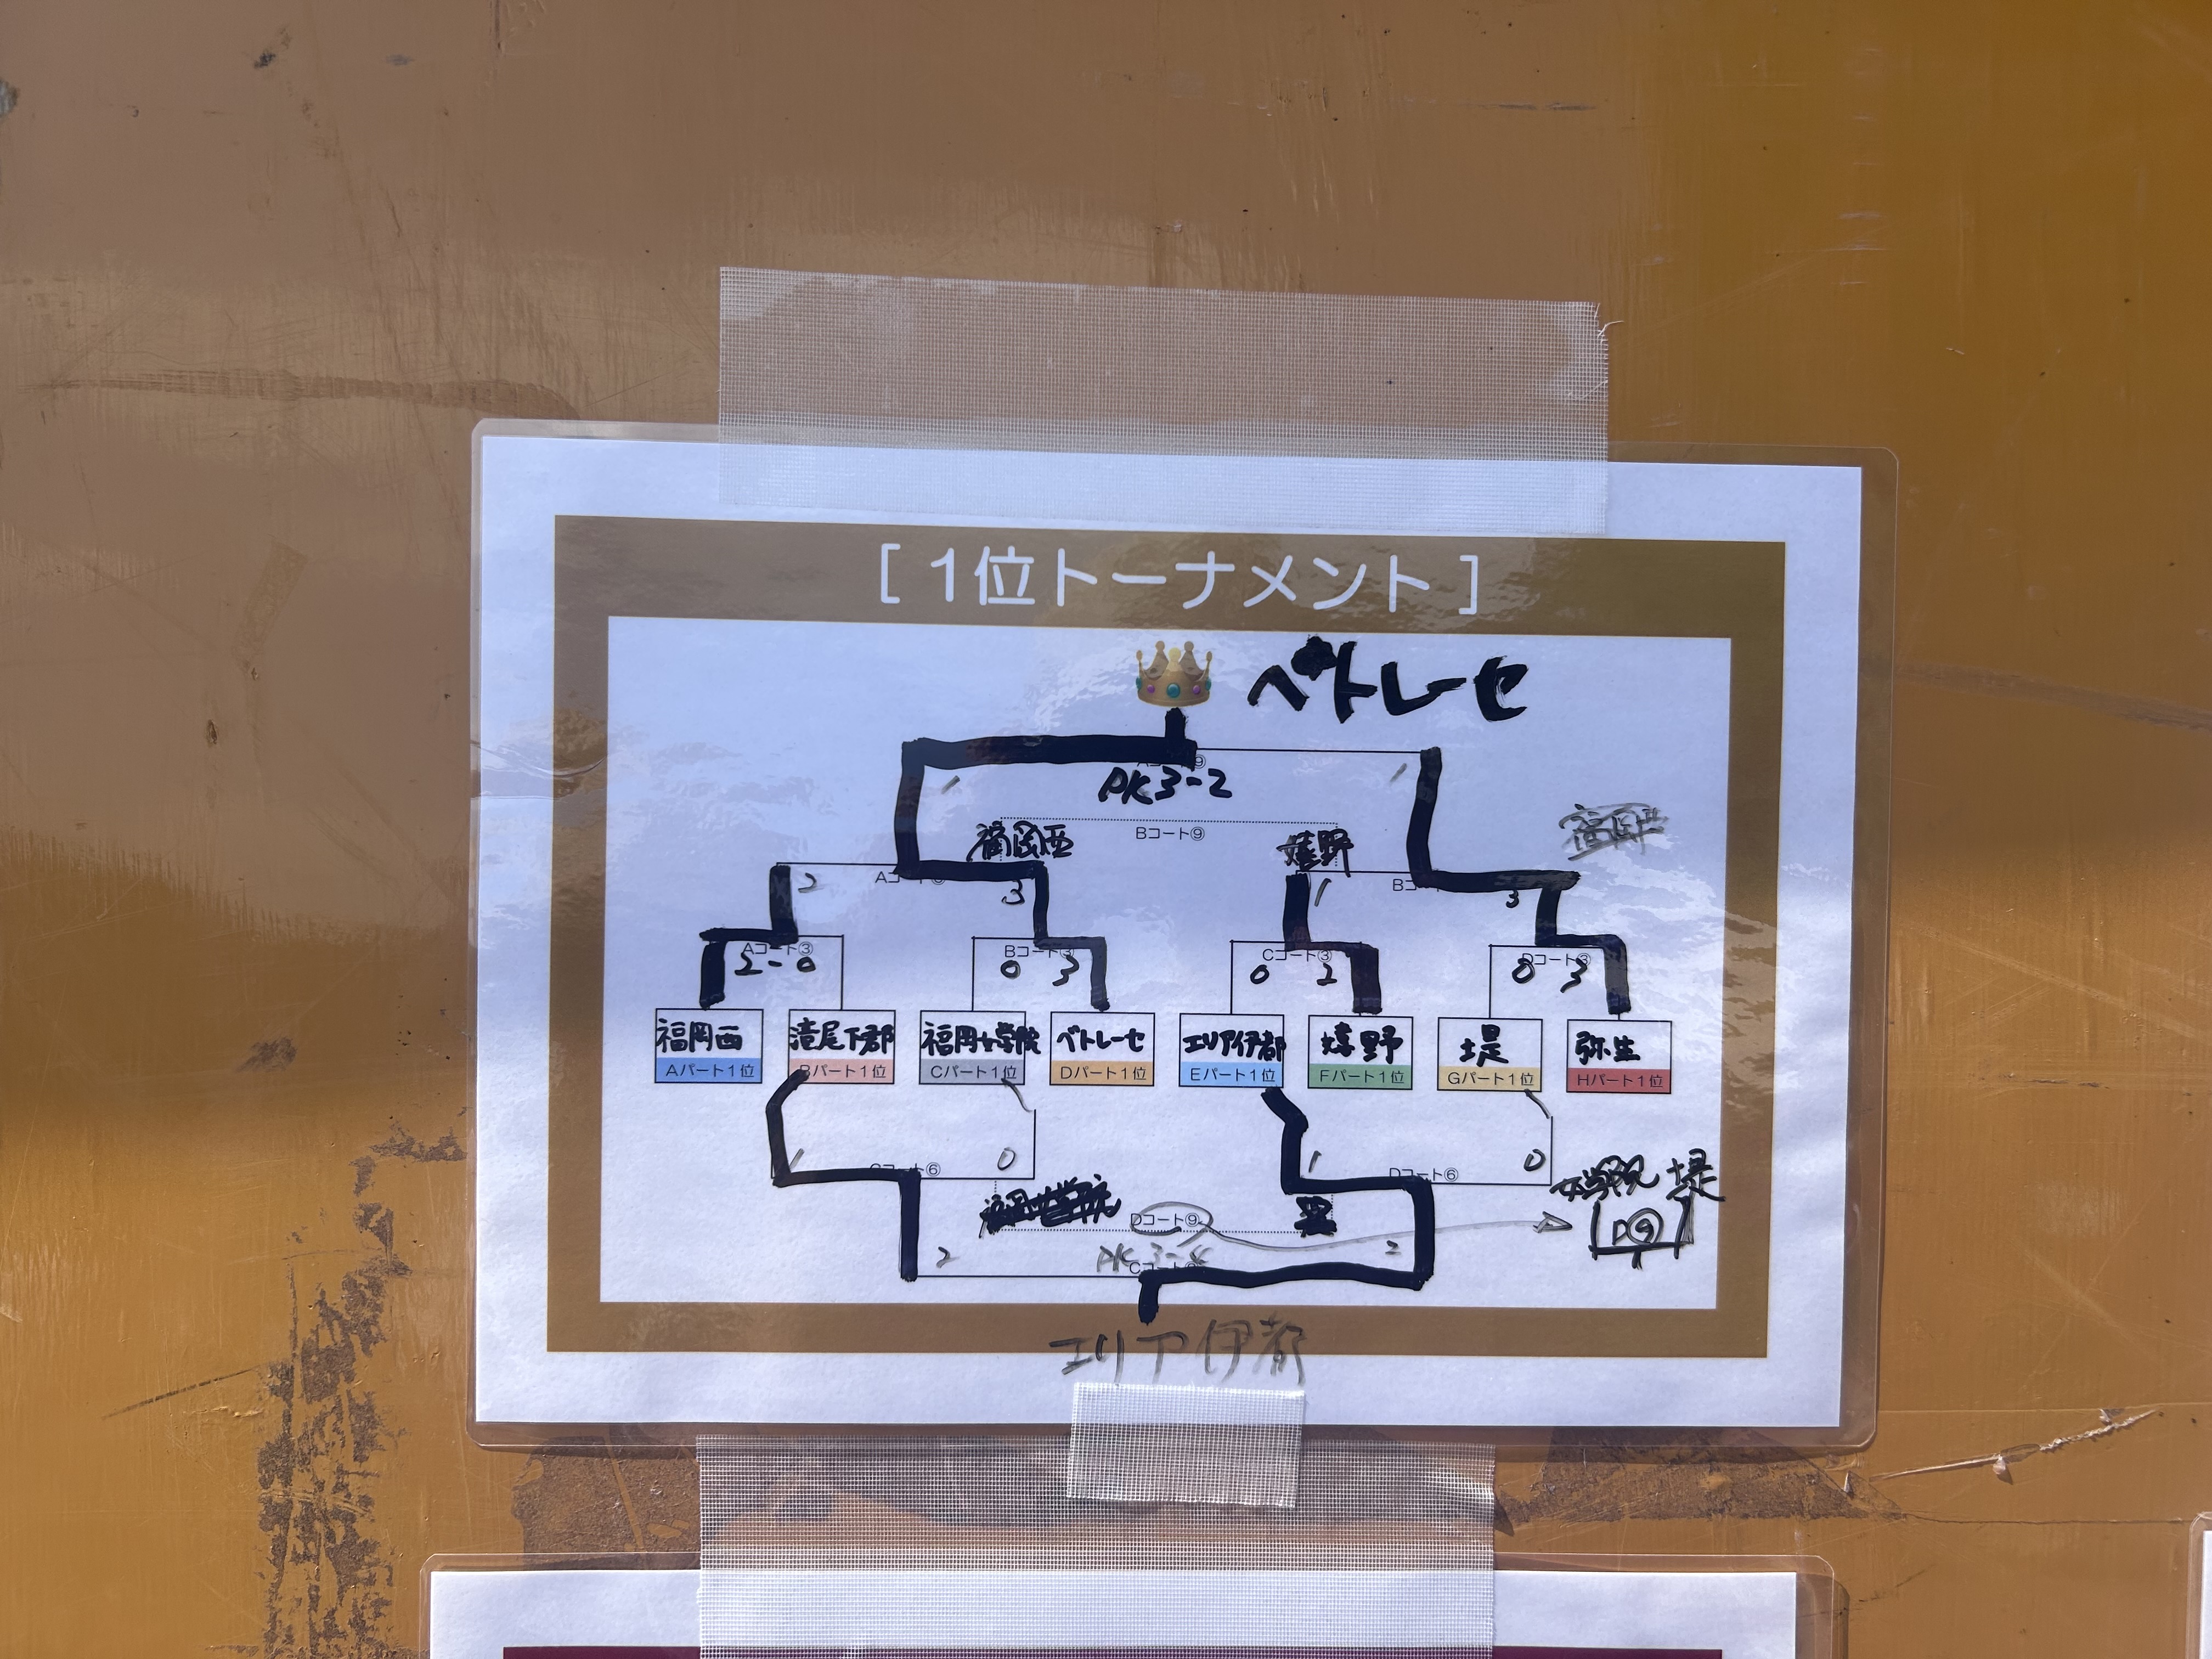 [ 1位トーナメント ]
ベトレーセ
1 1
PK 3-2
福岡西 Bコート⑨ 嬉野
2 3 1 3
Aコート③ Bコート③ Cコート③ Dコート③
2-0 0 3 0 2 0 3
福岡西 滝尾下郡 福岡女学院 ベトレーセ エリア伊都 嬉野 堤 弥生
Aパート1位 Bパート1位 Cパート1位 Dパート1位 Eパート1位 Fパート1位 Gパート1位 Hパート1位
1 0 1 0
Cコート⑥ Dコート⑥
女学院 堤
Dコート⑨ D⑨
2 PK 3-4 2
エリア伊都